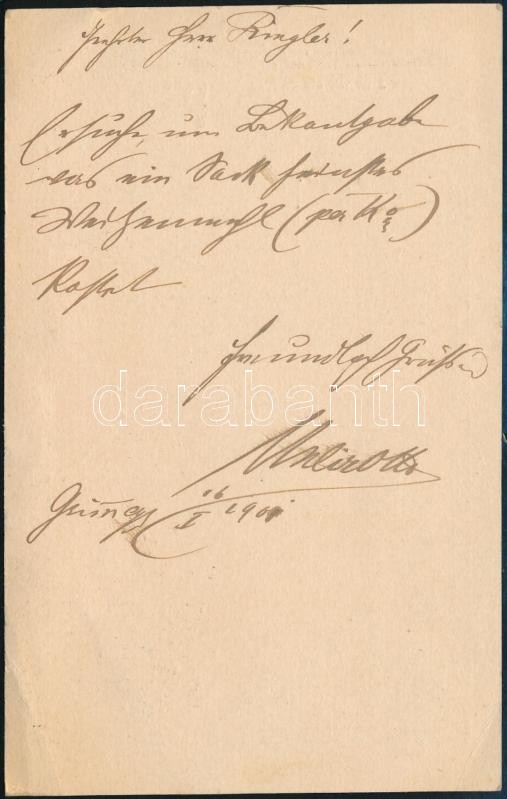 Geehrter Herr Ringler!
Ersuche, um Bekantgabe
was ein Sack feinstes
Weitzenmehl (per Ko)
kostet
freundlich Grüßend
darabanth
16/I 1901